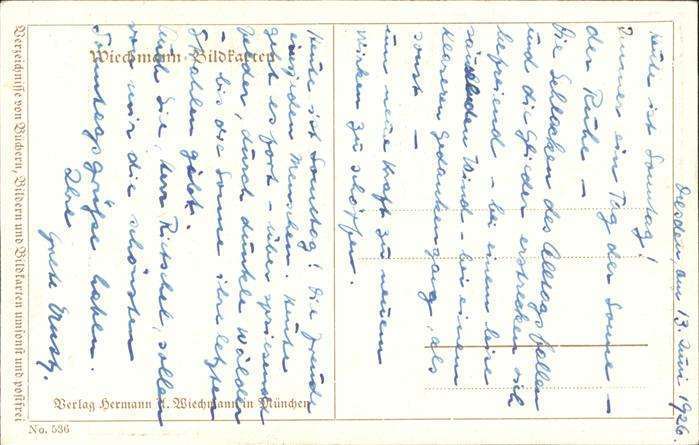 Dresden, am 13. Juni 1926.
Heute ist Sonntag!
Immer ein Tag der Sonne –
der Ruhe –
Die Schlacken des Alltags fallen
und die Glieder erstrecken sich
befreiend – bei einem leise
säuselnden Wind – bei einem
klareren Gedankengang, als
sonst –
um neue Kraft zu neuem
Wirken zu schöpfen.
Heute ist Sonntag! Die Freude
eines jeden Menschen. Heute
geht es fort – über spriesende
Felder, durch dunkle Wälder
– bis die Sonne ihre letzten
Strahlen gibt.
Auch Sie, Herr Rietschel, sollen
von mir die schönsten
Sonntagsgrüße haben.
Ihre
Grete
Wiechmann-Bildkarten
Verlag Hermann A. Wiechmann in München
No. 536
Verzeichnisse von Büchern, Bildern und Bildkarten umsonst und postfrei